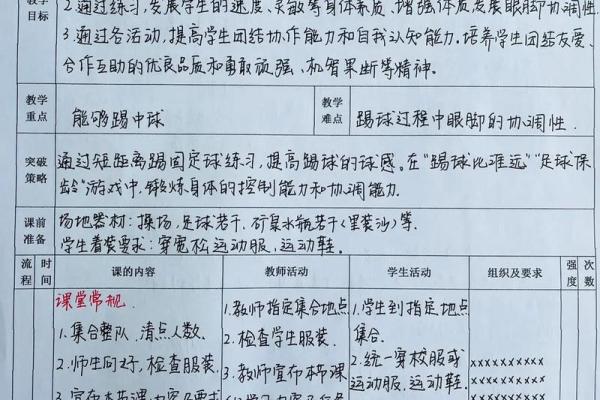 教学
目标
2.通过练习,发展学生的速度、灵敏等身体素质,增强体质发展眼脚协调性
3.通过各活动,提高学生团结协作能力和自我认知能力。培养学生团结友爱、
合作互助的优良品质和勇敢顽强、机智果断等精神。
教学
重点
能够踢中球
教学
难点
踢球过程中眼脚的协调性.
突破
策略
通过短距离踢固定球练习,提高踢球的球感。在“踢球比准远”“足球保
龄”游戏中,锻炼身体的控制能力和协调能力.
课前
准备
场地器材:操场,足球若干,矿泉水瓶若干(里装沙)等.
学生着装要求:穿宽松运动服,运动鞋。
流程 时间 课的内容 教师活动 学生活动 组织及要求 强度 次数
课堂常规.
1.集合整队,清点人数.
2.师生问好,检查服装.
3.宣布本节课内容及要求
1.教师指定集合地点
2.检查学生服装.
3.教师宣布本节课
1.学生到指定地点
集合.
2.统一穿校服或
运动服.运动鞋.
xxxxxxxxx
xxxxxxxxx
xxxxxxxxx